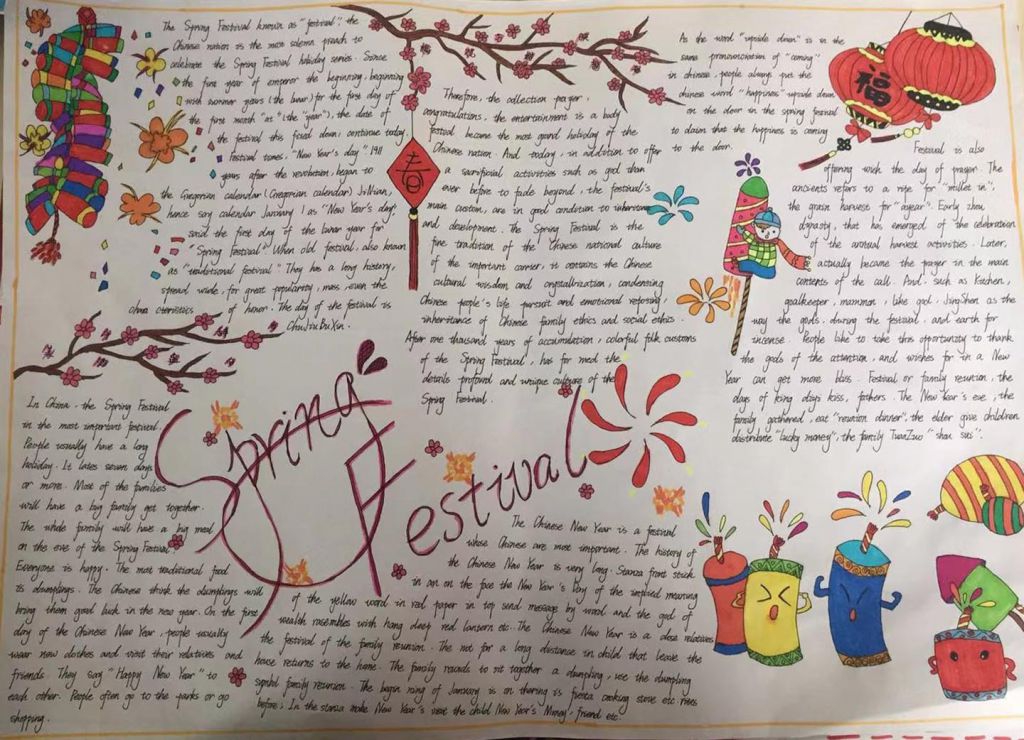 The Spring Festival known as "festival", the
Chinese nation is the most solemn, preach to
celebrate the Spring Festival holiday series. Since
the first year of emperor the beginning, beginning
with summer years (the lunar) for the first day of
the first month "at" (the "year"), the date of
the festival this fixed down, continue today,
festival times, "New Year's day" 1911
years after the revolution, began to
the Gregorian calendar (Gregorian calendar) JiNian,
hence say calendar January 1 as "New Year's day",
said the first day of the lunar year for
"Spring Festival". When old festival, also known
as "traditional festival". They has a long history,
spread wide, for great popularity, mass, even the
characteristics of honor. The day of the festival is
ChuJiuBuXin.
春
Therefore, the collection prayer,
congratulations, the entertainment is a body
festival become the most grand holiday of the
Chinese nation. And today, in addition to offer
a sacrificial activities such as god than
ever before to fade beyond, the festival's
main custom, are in good condition to inheritance
and development. The Spring Festival is the
fine tradition of the Chinese national culture
of the important carrier, it contains the Chinese
cultural wisdom and crystallization, condensing
Chinese people's life pursuit and emotional reposing,
inheritance of Chinese family ethics and social ethics.
After one thousand years of accumulation, colorful folk customs
of the Spring Festival, has for med the
details profound and unique culture of the
Spring Festival.
As the word "upside down" is in the
same pronunciation of "coming"
in chinese, people always put the
chinese word "happiness" upside down
on the door in the spring festival
to claim that the happines is coming
to the door.
福
Festival is also
offering wish the day of prayer. The
ancients refers to a ripe for "millet in",
the grain harvest for "ayear". Early zhou
dynasty, that has emerged of the celebration
of the annual harvest activities. Later,
actually became the prayer in the main
contents of the call. And, such as Kitchen,
goalkeeper, mammon, like god, JingShen as the
way the gods, during the festival, and earth for
incense. People like to take this opportunity to thank
the gods of the attention, and wishes for in a New
Year can get more bliss. Festival or family reunion, the
days of king dayi kiss, fathers. The New Year's eve, the
family gathered, eat "reunion dinner", the elder give children
distribute "lucky money", the family TuanZuo "shou sui".
Spring
Festival
In China, the Spring Festival
in the most important festival.
People usually have a long
holiday. It lates seven days
or more. Most of the families
will have a big family get together.
The whole family will have a big meal
on the eve of the Spring Festival.
Everyone is happy. The most traditional food
is dumplings. The Chinese think the dumplings will
bring them good luck in the new year. On the first
day of the Chinese New Year, people usually
wear new clothes and visit their relatives and
friends. They say "Happy New Year" to
each other. People often go to the parks or go
shopping.
The Chinese New Year is a festival
whose Chinese are most important. The history of
the Chinese New Year is very long. Stanza front stick
in an on the face the New Year's Day of the implied meaning
of the yellow word in red paper in top send message by wood and the god of
wealth rasembles with hang deep red lantern etc. The Chinese New Year is a close relatives
the festival of the family reunion. The not for a long distance in child that leave the
house returns to the home. The family rounds to sit together a dumpling, use the dumpling
symbol family reunion. The begin ning of January is on thering is fiesta cooking stove etc rises
before; In the stanza make New Year's visit the child New Year's Money, friend etc.